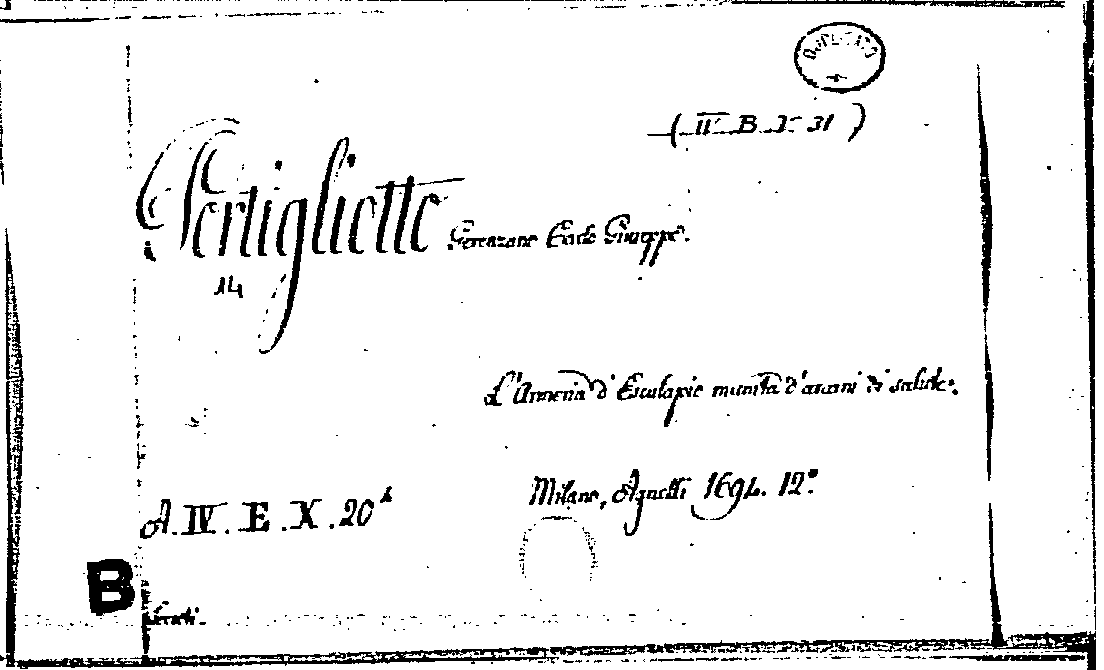 DUPLICATO
(IV B X 31)
Pertigliette Gerenzano Carlo Giuseppe.
14
L'Armeria d' Esculapio munita d'arcani di salute.
Milano, Agnelli 1694. 12º.
A. IV. E. X. 20
B